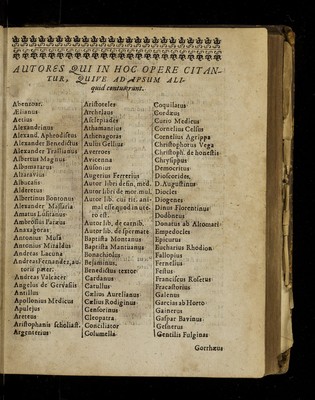 AUTORES QUI IN HOC OPERE CITAN-
TUR, QUIVE AD IPSUM ALI-
quid contulerunt.
Abenzoar.
Ælianus
Aetius
Alexandrinus
Alexand. Aphrodiseus
Alexander Benedictus
Alexander Trallianus
Albertus Magnus
Albumasarus
Alzaravius
Albucasis
Alderetus
Albertinus Bottonus
Alexander Massaria
Amatus Lusitanus
Anaxagoras
Antonius Musa
Antonius Mizaldus
Andreas Lacuna
Andreas Fernandez, au-
toris pater.
Andreas Valcacer
Angelus de Gervasiis
Antillus
Apollonius Medicus
Apulejus
Areteus
Aristophanis scholiast.
Argenterius
Aristoteles
Archelaus
Asclepiades
Athamantius
Athenagoras
Aulus Gellius
Averroes
Avicenna
Ausonius
Augerius Ferrerius
Autor libri defin. med.
Autor libri de mor. mul.
Autor lib. cui tit. ani-
mal esse, quod in ute-
ro est.
Autor lib, de carnib.
Autor lib. de spermate
Baptista Montanus
Baptista Mantuanus
Bonachiolus
Bejaminus,
Benedictus textor
Cardanus
Catullus
Cælius Aurelianus
Cælius Rodiginus
Censorinus
Cleopatra
Conciliator
Columella
Coquilatus
Cordæus
Curio Medicus
Cornelius Celsus
Cornelius Agrippa
Christophorus Vega
Christoph. de honestis
Chrysippus
Democritus
Dioscorides.
D. Augustinus
Diocles
Diogenes
Dinus Florentinus
Dodonæus
Donatus ab Altomari
Empedocles
Epicurus
Eucharius Rhodion
Fallopius
Fernelius
Festus
Franciscus Roserus
Fracastorius
Galenus
Garcias ab Horto
Gainerus
Gaspar Bavinus
Gesnerus
Gentilis Fulginas
Gorrhæus